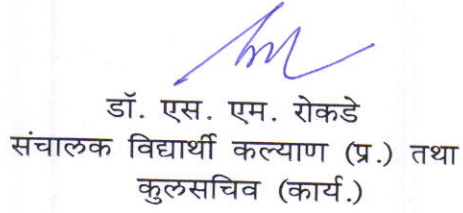 डॉ. एस. एम. रोकडे
संचालक विद्यार्थी कल्याण (प्र.) तथा
कुलसचिव (कार्य.)